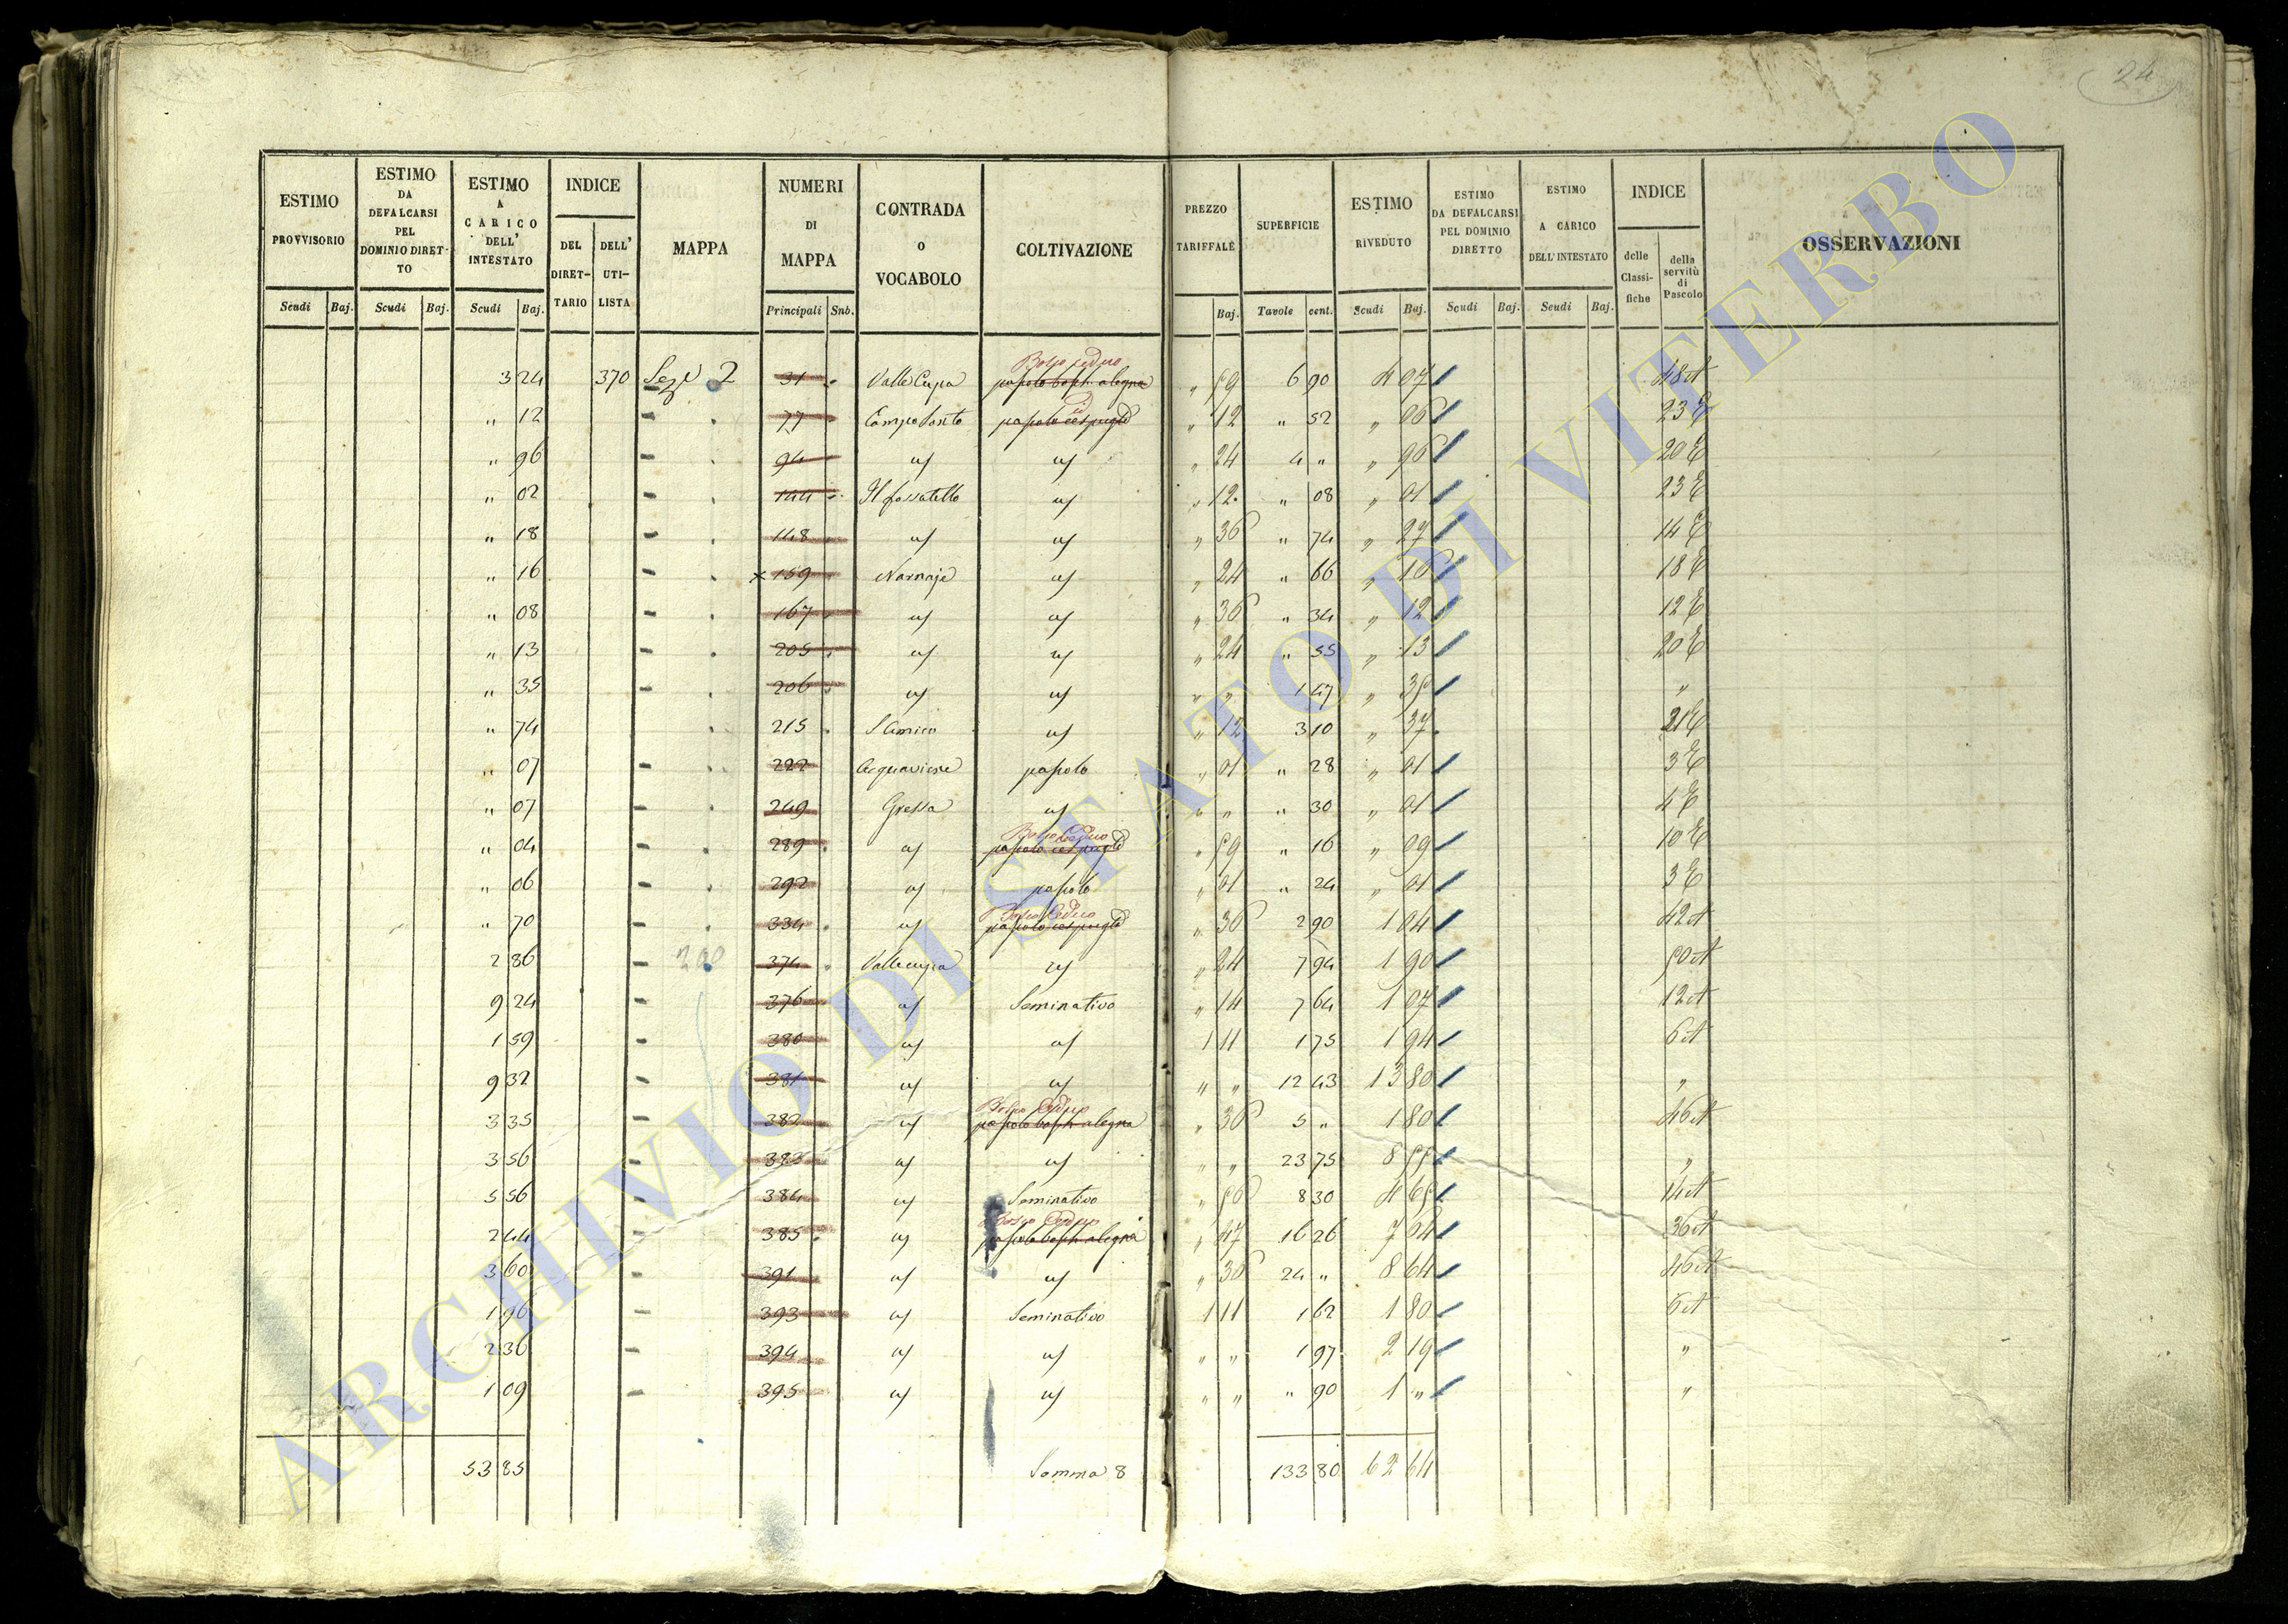 24
ESTIMO PROVVISORIO | ESTIMO DA DEFALCARSI PEL DOMINIO DIRETTO | ESTIMO A CARICO DELL' INTESTATO | INDICE | MAPPA | NUMERI DI MAPPA | CONTRADA O VOCABOLO | COLTIVAZIONE | PREZZO TARIFFALE | SUPERFICIE | ESTIMO RIVEDUTO | ESTIMO DA DEFALCARSI PEL DOMINIO DIRETTO | ESTIMO A CARICO DELL' INTESTATO | INDICE | OSSERVAZIONI
DEL DIRET-TARIO | DELL' UTI-LISTA | delle Classi-fiche | della servitù di Pascolo
Scudi | Baj. | Scudi | Baj. | Scudi | Baj. | Principali | Snb. | Baj. | Tavole | cent. | Scudi | Baj. | Scudi | Baj. | Scudi | Baj.
Bosco ceduo
3 24 370 Sezε 2 31 Valle Cupa pascolo bosch. a legna " 59 6 90 4 07 48 A
" 12 77 Campo Santo pascolo cespugl " 12 " 52 " 06 23 E
" 96 94 " 24 4 " " 96 20 E
" 02 144 Il fossatello " 12 " 08 " 01 23 E
" 18 148 " 36 " 74 " 27 14 E
" 16 159 Narnaje " 24 " 66 " 16 18 E
" 08 167 " 36 " 34 " 12 12 E
" 13 205 " 24 " 55 " 13 20 E
" 35 206 " " 1 47 " 35 "
" 74 215 S Amico " 12 3 10 " 37 21 E
" 07 222 Acquaviese pascolo " 01 " 28 " 01 3 E
" 07 249 Gressa " " " 30 " 01 4 E
Bosco Ceduo
" 04 289 pascolo cespugl " 59 " 16 " 09 10 E
" 06 292 pascolo " 01 " 24 " 01 3 E
Bosco Ceduo
" 70 334 pascolo cespugl " 36 2 90 1 04 42 A
2 86 200 374 Valle cupa " 24 7 94 1 90 50 A
9 24 376 Seminativo " 14 7 64 1 07 12 A
1 59 380 1 11 1 75 1 94 6 A
9 32 381 " " 12 43 13 80 "
Bosco Ceduo
3 35 382 pascolo bosch. a legna " 36 5 " 1 80 46 A
3 56 383 " " 23 75 8 55 "
5 56 384 Seminativo " 56 8 30 4 65 14 A
Bosco Ceduo
2 44 385 pascolo bosch. a legna " 47 16 26 7 64 36 A
3 60 391 " 36 24 " 8 64 46 A
1 96 393 Seminativo 1 11 1 62 1 80 6 A
2 36 394 " " 1 97 2 19 "
1 09 395 " " " 90 1 " "
53 85 Somma 8 133 80 62 64
ARCHIVIO DI STATO DI VITERBO